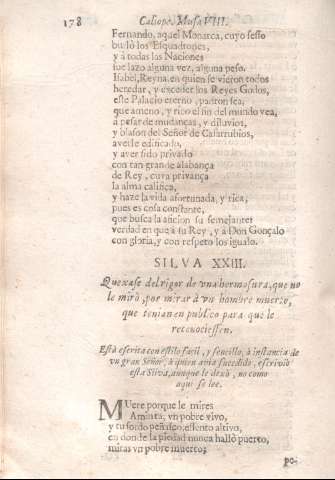 178 Caliope, Musa VIII.
Fernando, aquel Monarca, cuyo sesso
burlò los Esquadrones,
y à todas las Naciones
fue lazo alguna vez, alguna peso.
Isabel, Reyna, en quien se vieron todos
heredar, y exceder los Reyes Godos,
este Palacio eterno, panteon sea,
que ameno, y rico el fin del mundo vea,
à pesar de mudanças, y diluvios,
y blason del Señor de Casarrubios,
averle edificado,
y aver sido privado
con tan grande alabança
de Rey, cuya privança
la alma califica,
y haze la vida afortunada, y rica;
pues es cosa constante,
que busca la aficion su semejante:
verdad en que à su Rey, y à Don Gonçalo
con gloria, y con respeto los igualo.
SILVA XXIII.
Quexase del rigor de vna hermosura, que no
le mirò, por mirar à vn hombre muerto,
que tenian en publico para que le
reconociessen.
Està escrita con estilo facil, y sencillo, à instancia de
vn gran Señor, à quien avia sucedido, escriviò
esta Silva, aunque le dexò, no como
aqui se lee.
MUere porque le mires
Aminta, vn pobre vivo,
y tu sordo peñasco, essento altivo,
en donde la piedad nunca hallò puerto,
miras vn pobre muerto;
po-